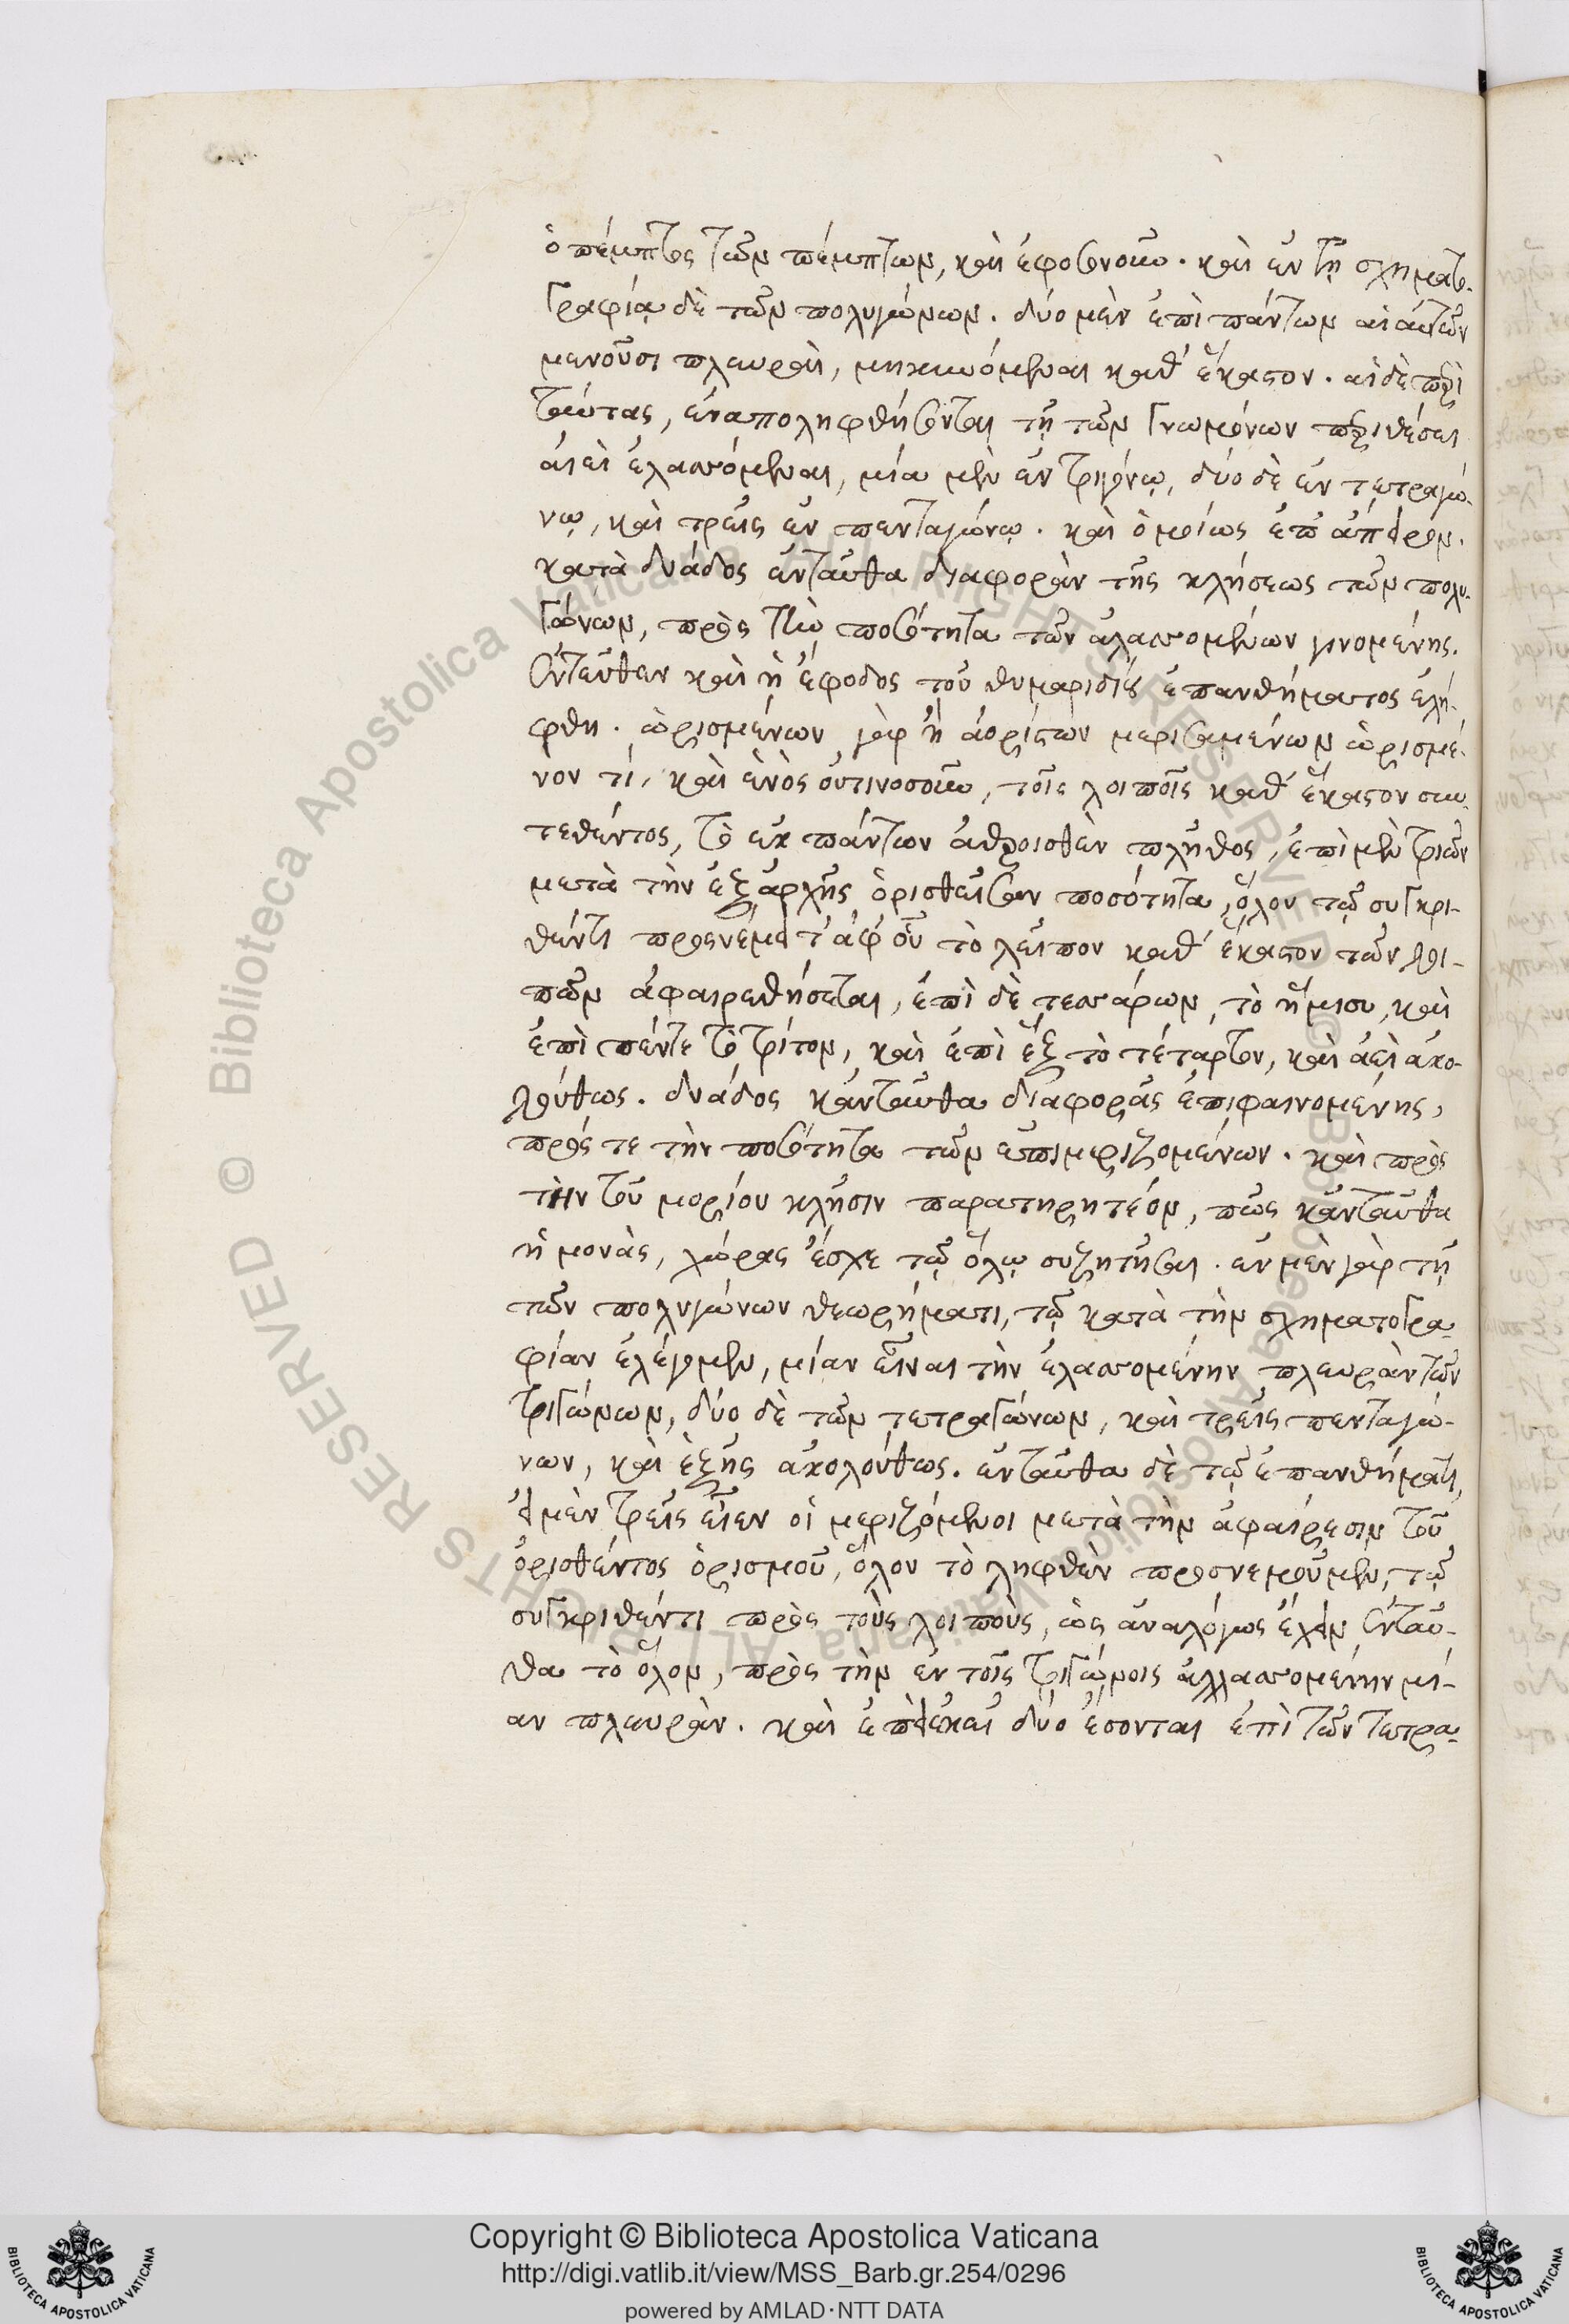 ὁ πέμπτος τῶν πέμπτων, καὶ ἐφ' ὅσον οὖν. καὶ ἐν τῇ σχηματο-
γραφίᾳ δὲ τῶν πολυγώνων. δύο μὲν ἐπὶ πάντων αἱ αὐτῶν
μενοῦσι πλευραὶ, μηκυνόμεναι καθ' ἕκαστον. αἱ δὲ περὶ
ταύτας, ἐναποληφθήσονται τῇ τῶν γνωμόνων περιθέσει
ἀιεὶ ἐλασσόμεναι, μία μὲν ἐν τριγώνῳ, δύο δὲ ἐν τετραγώ-
νῳ, καὶ τρεῖς ἐν πενταγώνῳ. καὶ ὁμοίως ἐπ' ἄπειρον.
κατὰ δυάδος ἐνταῦθα διαφορὰν τῆς κλήσεως τῶν πολυ-
γώνων, πρὸς τὴν ποσότητα τῶν ἀλασσομένων γινομένης.
ἐντεῦθεν καὶ ἡ ἔφοδος τοῦ θυμαριδίου ἐπανθήματος ἐλή-
φθη. ὡρισμένων γὰρ ἢ ἀορίστων μερισαμένων ὡρισμέ-
νον τί, καὶ ἑνὸς οὑτινοσοῦν, τοῖς λοιποῖς καθ' ἕκαστον συν-
τεθέντος, τὸ ἐκ πάντων ἀθροισθὲν πλῆθος, ἐπὶ μὲν τριῶν
μετὰ τὴν ἐξ ἀρχῆς ὁρισθεῖσαν ποσότητα, ὅλον τῷ συγκρι-
θέντι προσνέμει τ' ἀφ' οὗ τὸ λεῖπον καθ' ἕκαστον τῶν λοι-
πῶν ἀφαιρεθήσεται, ἐπὶ δὲ τεσσάρων, τὸ ἥμισυ, καὶ
ἐπὶ πέντε τὸ τρίτον, καὶ ἐπὶ ἓξ τὸ τέταρτον, καὶ ἀεὶ ἀκο-
λούθως. δυάδος κἀνταῦθα διαφορᾶς ἐπιφαινομένης,
πρός τε τὴν ποσότητα τῶν ἐπιμεριζομένων. καὶ πρὸς
τὴν τοῦ μορίου κλῆσιν παρατηρητέον, πῶς κἀνταῦθα
ἡ μονὰς, χώρας ἔσχε τῷ ὅλῳ συζητῆσαι. ἐν μὲν γὰρ τῇ
τῶν πολυγώνων θεωρήματι, τῷ κατὰ τὴν σχηματογρα-
φίαν ἐλέγομεν, μίαν εἶναι τὴν ἐλασσομένην πλευρὰν τῶν
τριγώνων, δύο δὲ τῶν τετραγώνων, καὶ τρεῖς πενταγώ-
νων, καὶ ἑξῆς ἀκολούθως. ἐνταῦθα δὲ τῷ ἐπανθήματι,
εἰ μὲν τρεῖς εἶεν οἱ μεριζόμενοι μετὰ τὴν ἀφαίρεσιν τοῦ
ὁρισθέντος ὁρισμοῦ, ὅλον τὸ ληφθὲν προσνεμοῦμεν, τῷ
συγκριθέντι πρὸς τοὺς λοιποὺς, ὡς ἀναλόγως ἔχειν ἐνταῦ-
θα τὸ ὅλον, πρὸς τὴν ἐν τοῖς τριγώνοις ἀλλασσομένην μί-
αν πλευρὰν. καὶ ἐπεὶ ἐκεῖ δύο ἔσονται ἐπὶ τῶν τετρα-
Copyright © Biblioteca Apostolica Vaticana
http://digi.vatlib.it/view/MSS_Barb.gr.254/0296
powered by AMLAD·NTT DATA